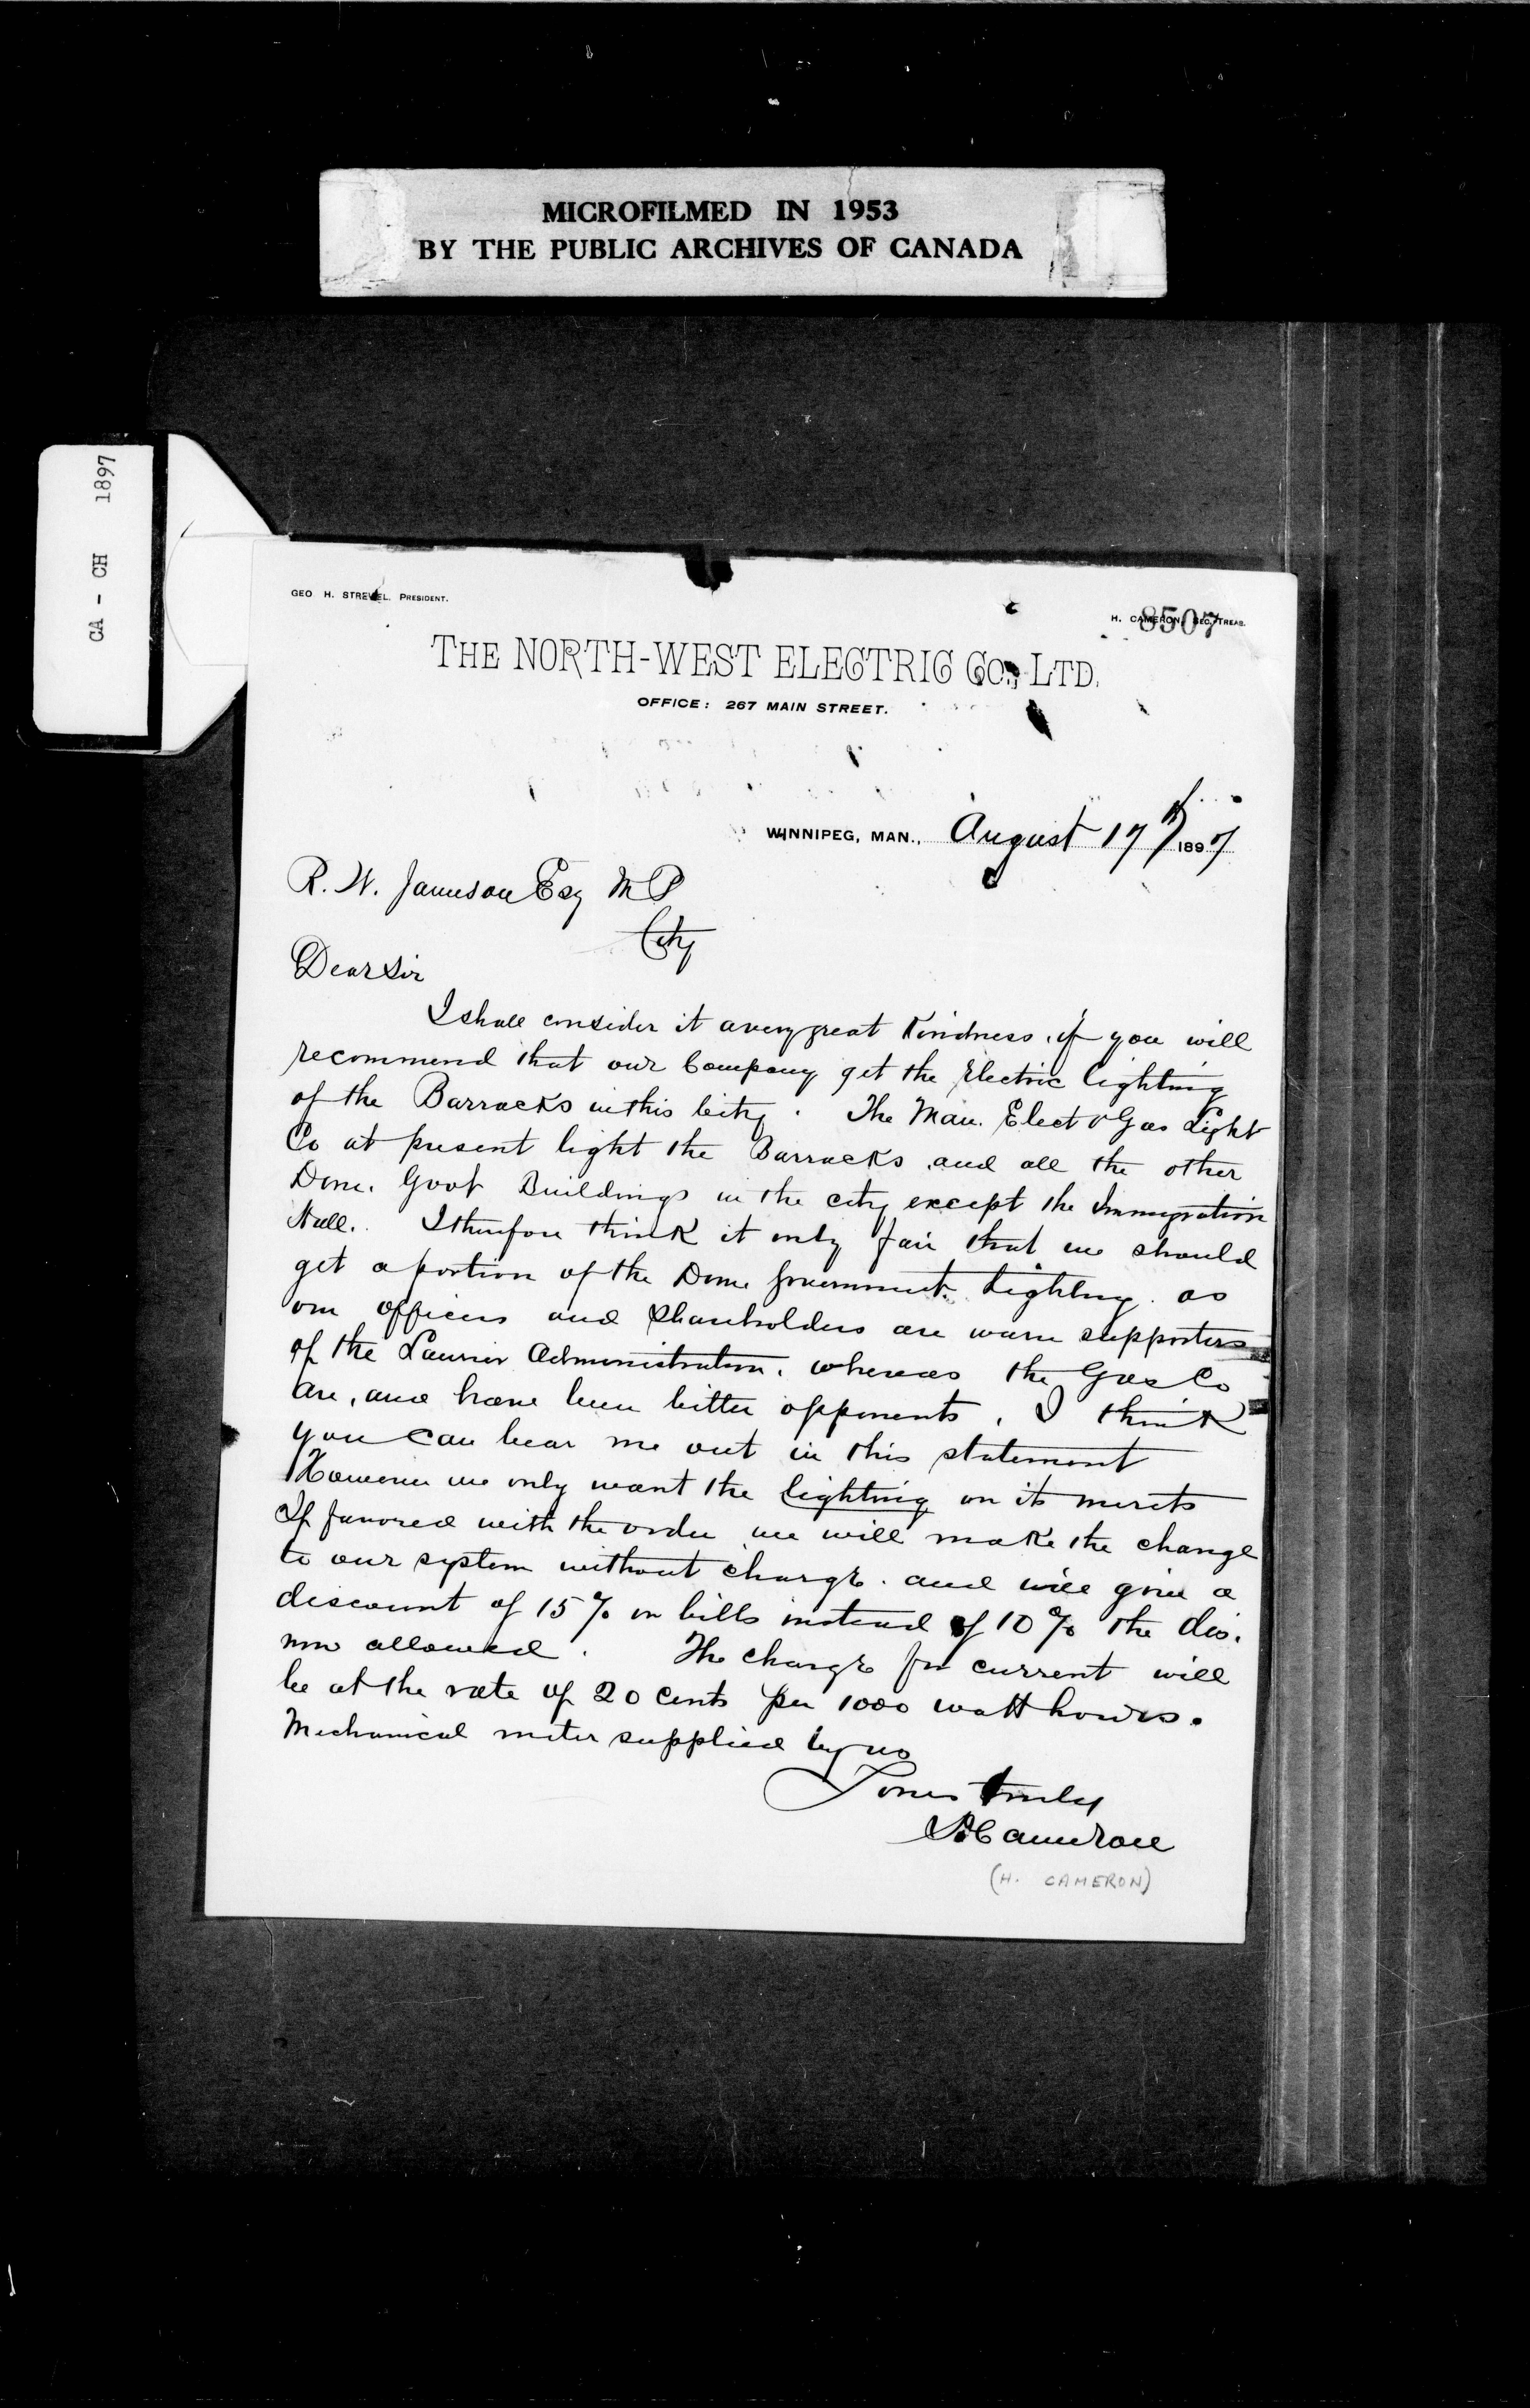 MICROFILMED IN 1953
BY THE PUBLIC ARCHIVES OF CANADA
CA - CH 1897
GEO H. STREVEL. PRESIDENT.
H. CAMERON, SEC.-TREAS.
8507
THE NORTH-WEST ELECTRIC CO., LTD.
OFFICE: 267 MAIN STREET.
WINNIPEG, MAN., August 17th 1897
R. W. Jameson Esq M P
City
Dear Sir
I shall consider it a very great Kindness, if you will
recommend that our Company get the Electric lighting
of the Barracks in this City. The Man. Elect & Gas Light
Co at present light the Barracks and all the other
Dom. Govt Buildings in the city except the Immigration
Hall. I therefore think it only fair that we should
get a portion of the Dom Government Lighting. as
our officers and Shareholders are warm supporters
of the Laurier Administration, whereas the Gas Co
are, and have been bitter opponents, I think
you can bear me out in this statement
However we only want the lighting on its merits
If favored with the order we will make the change
to our system without charge. and will give a
discount of 15% on bills instead of 10% the dis.
now allowed. The charge for current will
be at the rate of 20 cents per 1000 watt hours.
Mechanical meter supplied by us
Yours truly
H Cameron
(H. CAMERON)